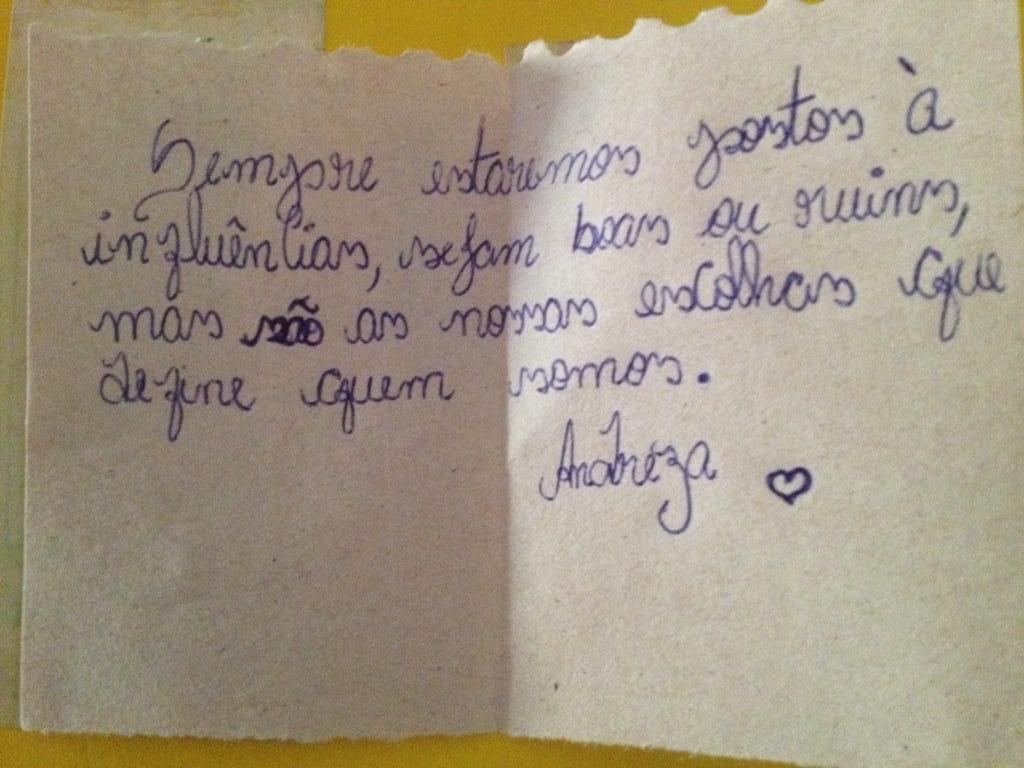 Sempre estaremos postos à
influências, sejam boas ou ruins,
mas são as nossas escolhas que
define quem somos.
Andréza